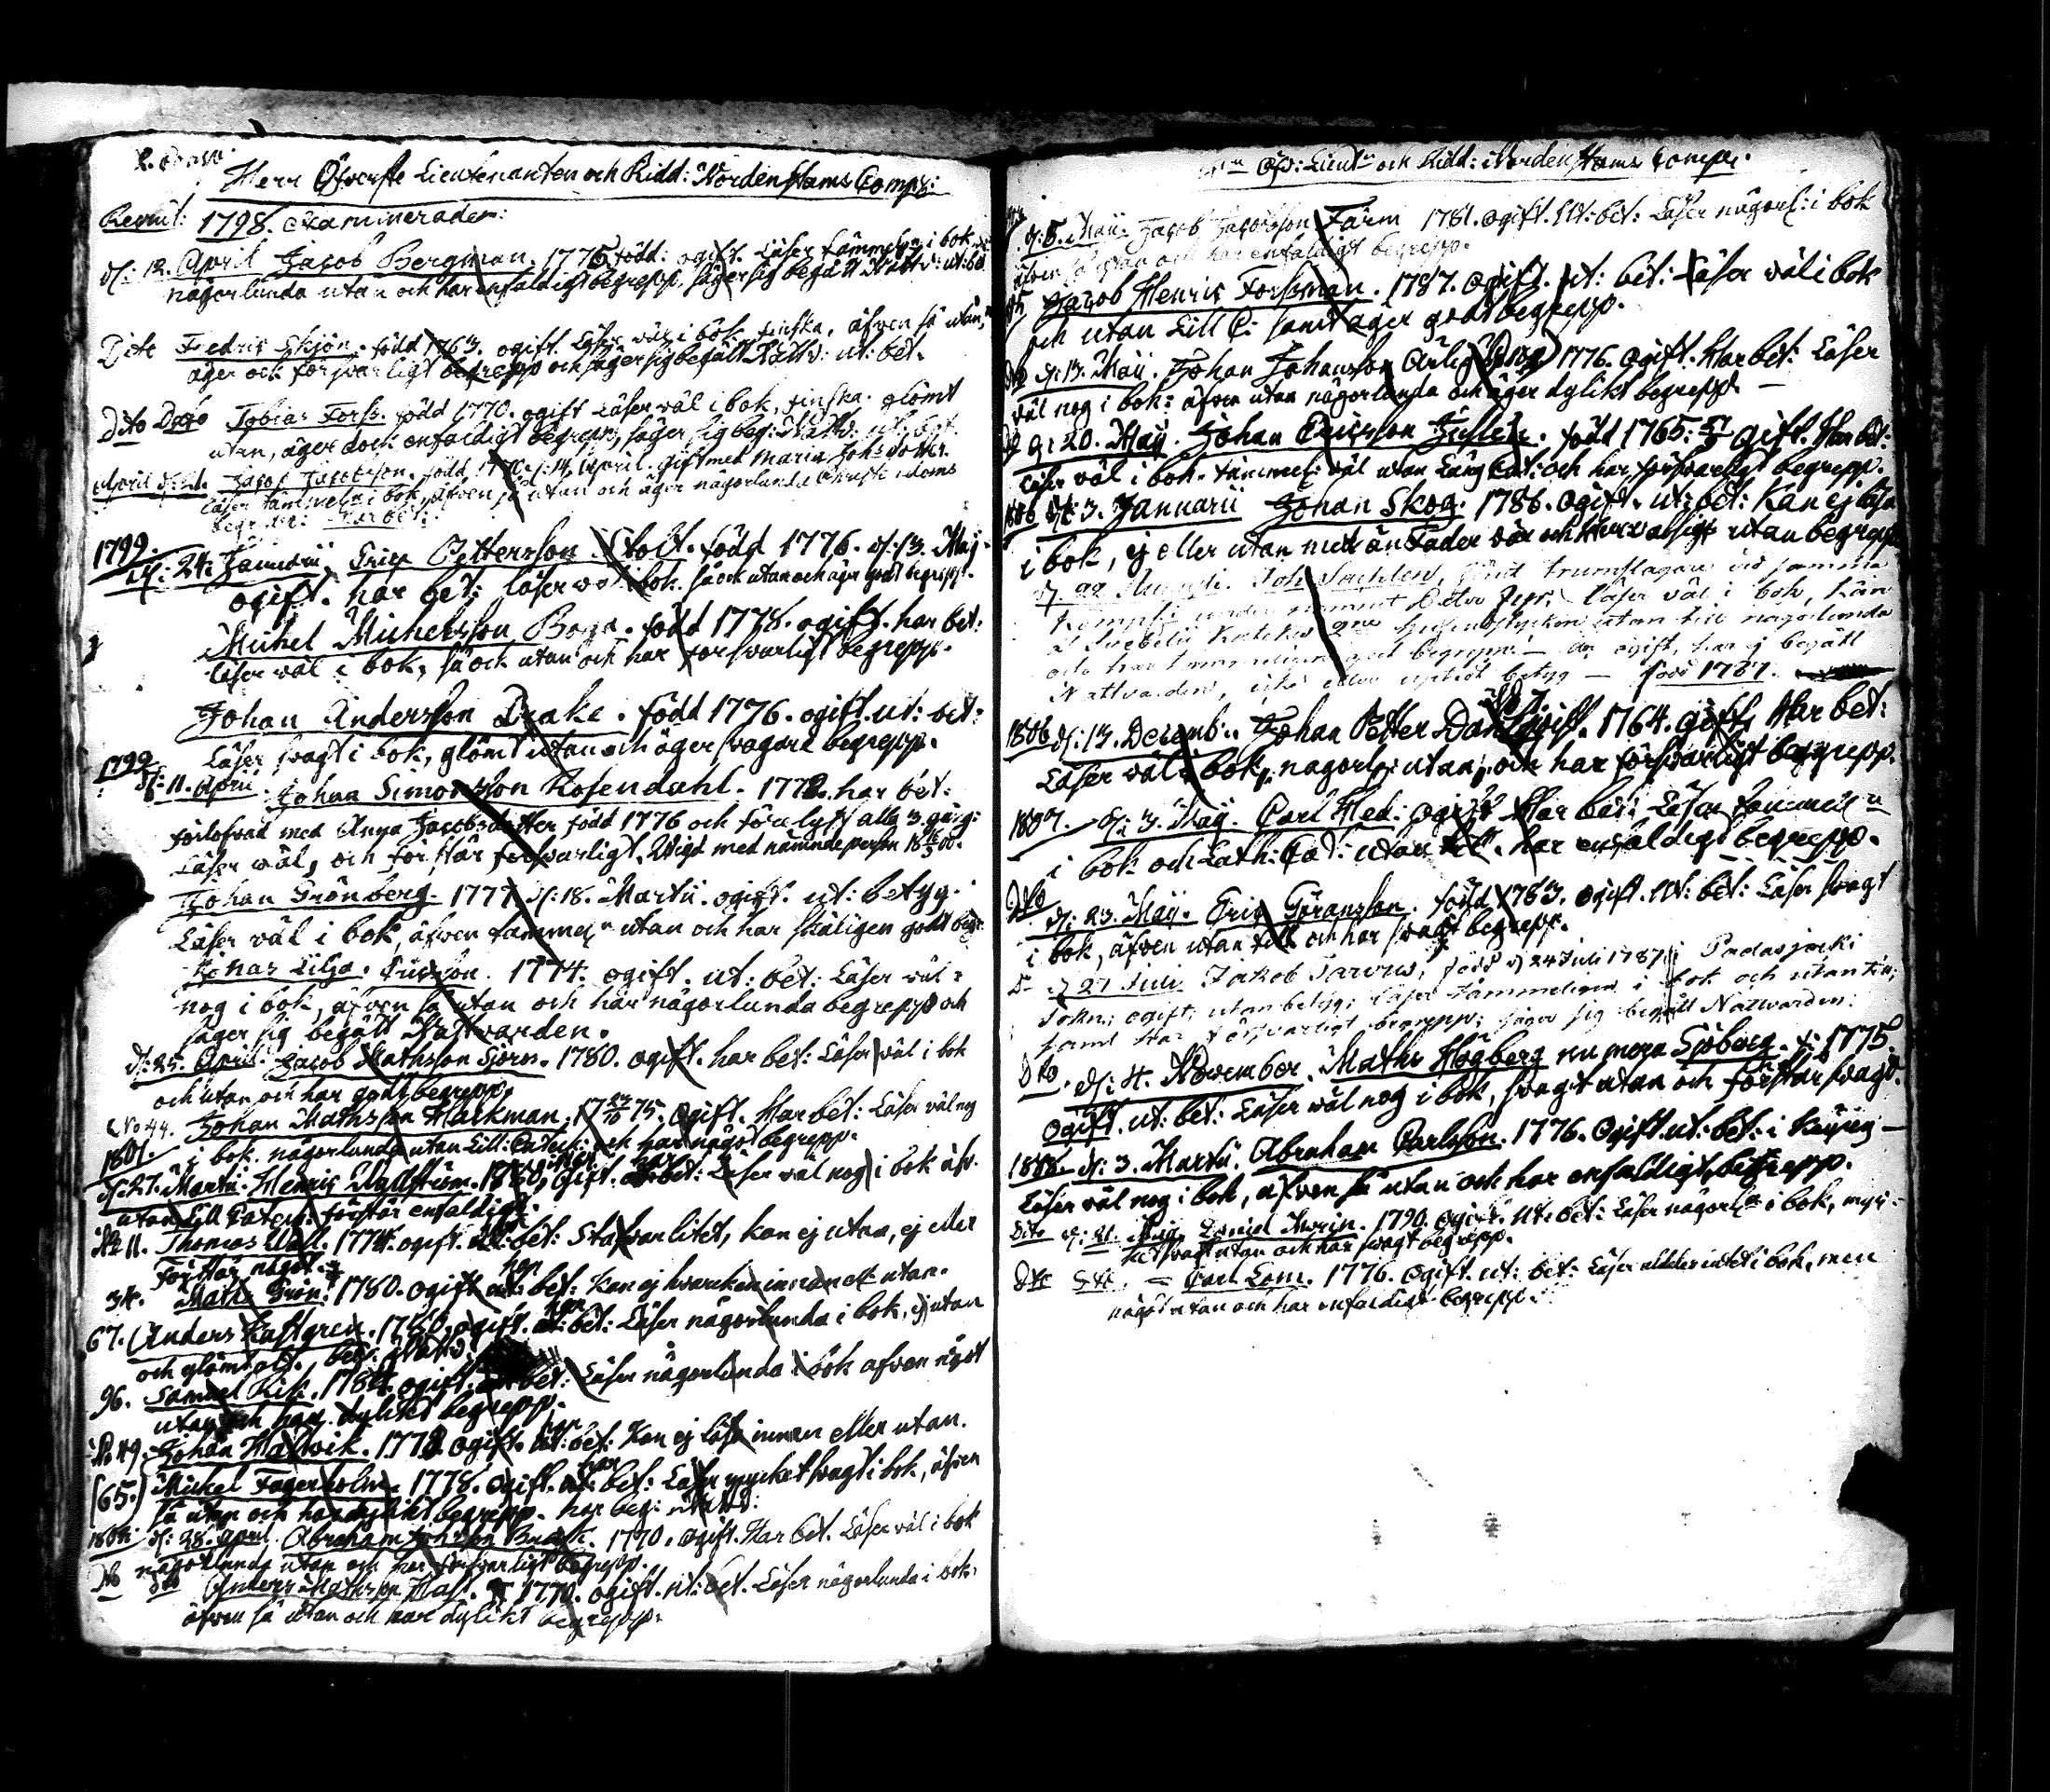 Herr Öfverste Lieutenanten och Ridd: Nordenstams Comp:
Recruit: 1798. Examinerader:
d: 12. April Jacob Bergman. 1775 född: ogift. Läser tämmeln i bok
någorlunda utan och har enfaldigt begrepp, säger sig begått Nattv: ut: bet
Dito Fredric Skjön. född 1763. ogift. Läser väl i bok finska, äfven så utan,
äger ock försvarligt begrepp och säger sig begått Nattv: ut: bet.
Dito Dato Tobias Forss. född 1770. ogift Läser väl i bok, finska. glömt
utan, äger dock enfaldigt begrepp, säger sig beg: Nattv: ut: bet.
April Jacob Jacobsson. född d: 14 April. gift med Maria Johsdotter.
Läser tämmeln i bok, äfven så utan och äger någorlunda Christendoms
begrepp: Har bet:
1799.
d: 24: Januarii. Eric Pettersson Stolt. född 1776. d: 13. Maj
ogift. har bet: läser väl i bok. så ock utan och äger godt begrepp.
Michel Michelsson Boga. född 1778. ogift. har bet:
läser väl i bok, så ock utan och har försvarligt begrepp.
Johan Andersson Drake. född 1776. ogift. ut: bet:
Läser svagt i bok, glömt utan och äger svagare begrepp.
1799
d: 11. April. Johan Simonsson Rosendahl. 1772. har bet:
förlofvad med Anna Jacobsdotter född 1776 och förelyst alla 3. gång:
Läser väl, och förstår försvarligt. Vigd med nämnde person
Johan Grönberg. 1777. d: 18. Martii. ogift. ut: betyg.
Läser väl i bok, äfven tämmeln utan och har skäligen godt begr:
Jonas Lilja. Ericsson. 1774. ogift. ut: bet: Läser väl
nog i bok, äfven så utan och har någorlunda begrepp och
säger sig begått Nattvarden.
d: 25. April. Jacob Mathsson Sjöm. 1780. ogift. har bet: Läser väl i bok
och utan och har godt begrepp.
No 44. Johan Mathsson Markman. 1775. ogift. Har bet: Läser väl nog
i bok. någorlunda utan Lill: Catech: och har något begrepp.
1801.
d: 27. Martii. Henric Myllström. 1780, ogift. har bet: Läser väl nog i bok äfv.
utan Lill Catech: förstår enfaldigt.
No 11. Thomas Wall. 1774. ogift. bet: Stafvar litet, kan ej utan, ej eller
Förstår något.
34. Maths Grön. 1780. ogift har bet: Kan ej hvarcken innan el: utan.
67. Anders Kastgren. 1780. ogift. har bet: Läser någorlunda i bok, ej utan
och glömt alt. beg: Nattv:
96. Samuel Kisk. 1784. ogift. bet: Läser någorlunda i bok äfven något
utan och har dylikt begrepp.
No 49. Johan Hallwik. 1772 ogift. har bet: Kan ej läsa innan eller utan.
(65.) Michel Fagerholm. 1778. ogift. har bet: Läser mycket svagt i bok, äfven
så utan och har dylikt begrepp. har beg: Nattv:
d: 28. April. Abraham Johsson Brask. 1770. ogift. Har bet. Läser väl i bok
någorlunda utan och har försvarligt begrepp.
Do Do Anders Mathsson Hast. 1770. ogift. ut: bet. Läser någorlunda i bok.
äfven så utan och har dylikt begrepp.
Öfv: Lieut: och Ridd: Nordenstams Comp:
d: 5. Maii. Jacob Jacobsson Färm 1781. ogift. Ut: bet: Läser någorl: i bok
äfven så utan och har enfaldigt begrepp.
Jacob Henric Forssman. 1787. ogift. ut: bet: Läser väl i bok
och utan Lill C: samt äger godt begrepp.
Do d: 13. Maij. Johan Johansson Ärlig 1776. ogift. Har bet: Läser
väl nog i bok: äfven utan någorlunda och äger dylikt begrepp. —
d: 20. Maij. Johan Ericsson född 1765: gift. Har bet:
Läser väl i bok. tämmel: väl utan Lång Cat: och har försvarligt begrepp.
1806 d: 3. Januarii Johan Skog. 1786. ogift. ut: bet: Kan ej läsa
i bok, ej eller utan med än Fader vår och Herre välsigne utan begrepp
Joh Sachlen, född trumslagare vid samma
Läser väl i bok, kan
utan till någorlunda
och har tämmeligen god begrepp: — är ogift, har ej begått
Nattvarden, icke eller uptedt betyg — född 1787.
1806 d: 13. Decemb: Johan Petter 1764. gift, Har bet:
Läser väl i bok, någorl: utan, och har försvarligt begrepp.
1807. d: 3. Maij. Carl Hed: ogift Har bet: Läser tämmeln
i bok och Cath: utan till. har enfaldigt begrepp.
Dito
d: 23. Maij. Eric Göransson. född 1783. ogift. Ut: bet: Läser svagt
i bok, äfven utan till och har svagt begrepp.
D d 27 Juli Jakob Tarvus, född d 24 Juli 1787 i Padasjocki
Sokn; ogift; utan betyg; läser tämmeligen i bok och utan till,
samt har försvarligt begrepp; säger sig begått Nattvarden.
Dto. d: 4. November. Maths Högberg nu mera Sjöberg. f: 1775.
ogift. ut: bet: Läser väl nog i bok, svagt utan och förstår svagt.
1808 d: 3. Martii. Abraham Carlsson. 1776. Ogift. ut: bet: i
Läser väl nog i bok, äfven så utan och har enfaldigt begrepp.
Dito d: 21. Maij. Daniel 1790. ogift. Ut: bet: Läser någorl: i bok, myc-
ket svagt utan och har svagt begrepp.
Dto Dto. — Carl Lom. 1776. ogift. ut: bet: Läser alldeles intet i bok, men
något utan och har enfaldigt begrepp.